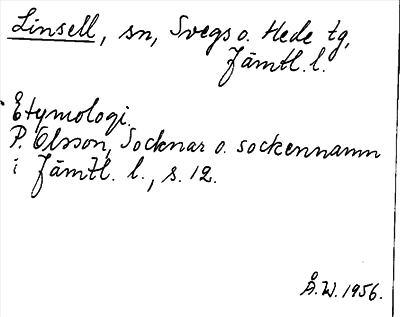 Linsell, sn, Svegs o. Hede tg,
Jämtl. l.
Etymologi.
P. Olsson, Socknar o. sockennamn
i Jämtl. l., s. 12.
Å.W. 1956.